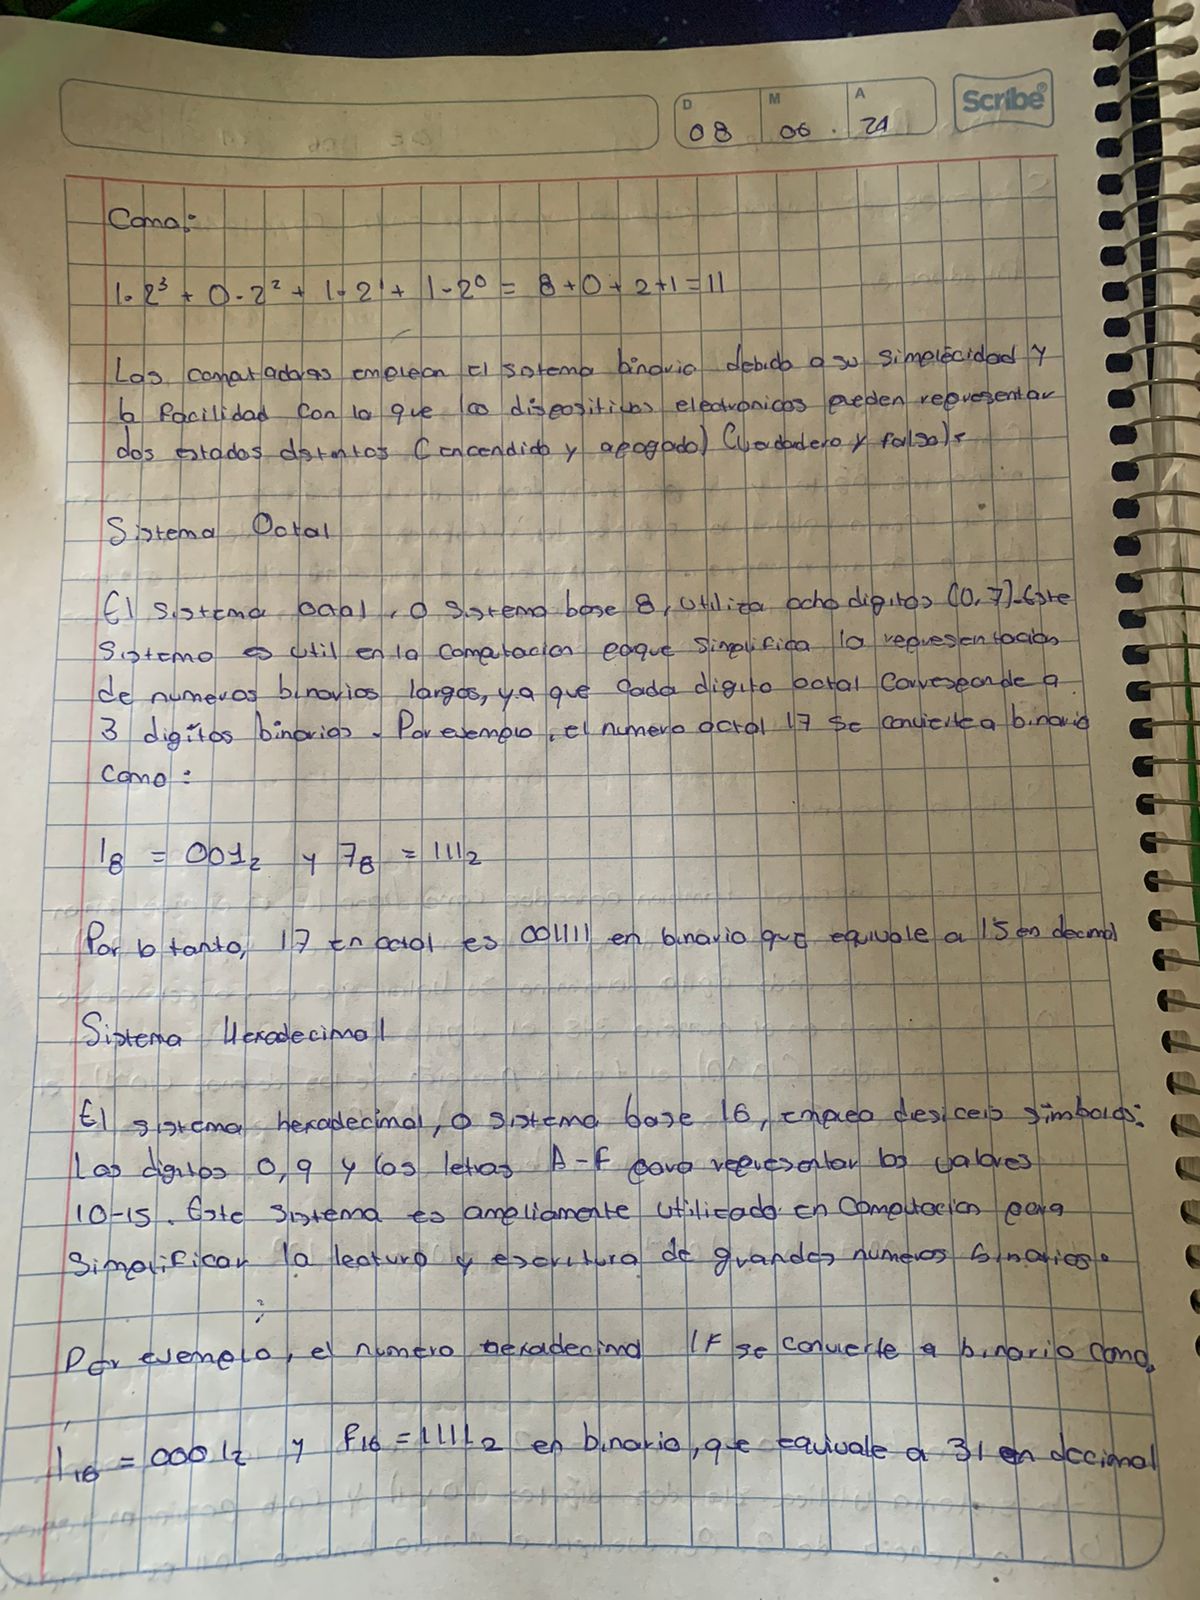 D M A
08 06. 24
Scribe
Como:
1·2³ + 0·2² + 1·2¹ + 1·2⁰ = 8+0+2+1=11
Las computadoras emplean el sistema binario debido a su simplecidad y
la facilidad con la que los dispositivos electronicos pueden representar
dos estados distintos (encendido y apagado) (verdadero y falso).
Sistema Octal
El sistema octal, o sistema base 8, utiliza ocho digitos (0,7). Este
sistema es util en la computacion poque simplifica la representacion
de numeros binarios largos, ya que cada digito octal corresponde a
3 digitos binarios. Por ejemplo, el numero octal 17 se convierte a binario
como:
1₈ = 001₂ y 7₈ = 111₂
Por lo tanto, 17 en octal es 001111 en binario que equivale a 15 en decimal
Sistema Hexadecimal
El sistema hexadecimal, o sistema base 16, emplea desiceis simbolos:
Los digitos 0,9 y las letras A-F para representar los valores
10-15. Este sistema es ampliamente utilizado en computacion para
simplificar la lectura y escritura de grandes numeros binarios.
Por ejemplo, el numero hexadecimal 1F se convierte a binario como,
1₁₆ = 0001₂ y F₁₆ = 1111₂ en binario, que equivale a 31 en decimal